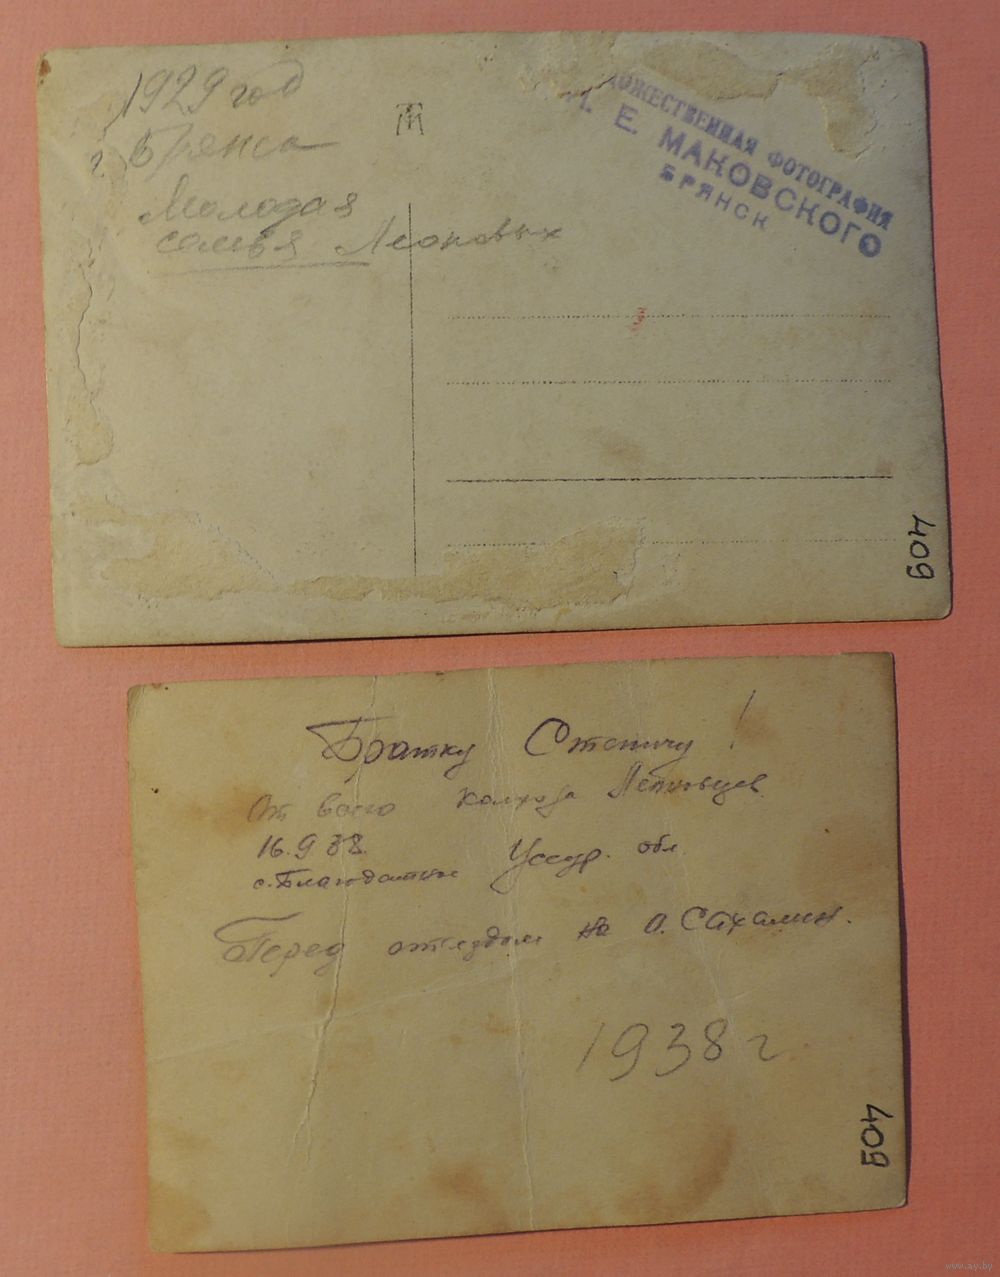 1929 год
г. Брянск
Молодая
семья Леоновых
ХУДОЖЕСТВЕННАЯ ФОТОГРАФИЯ
Е. МАКОВСКОГО
БРЯНСК
409
Братку Степичу!
От всего колхоза
16.9.38.
с. Благодатное Уссур. обл.
Перед отъездом на о. Сахалин.
1938 г
409
www.ay.by